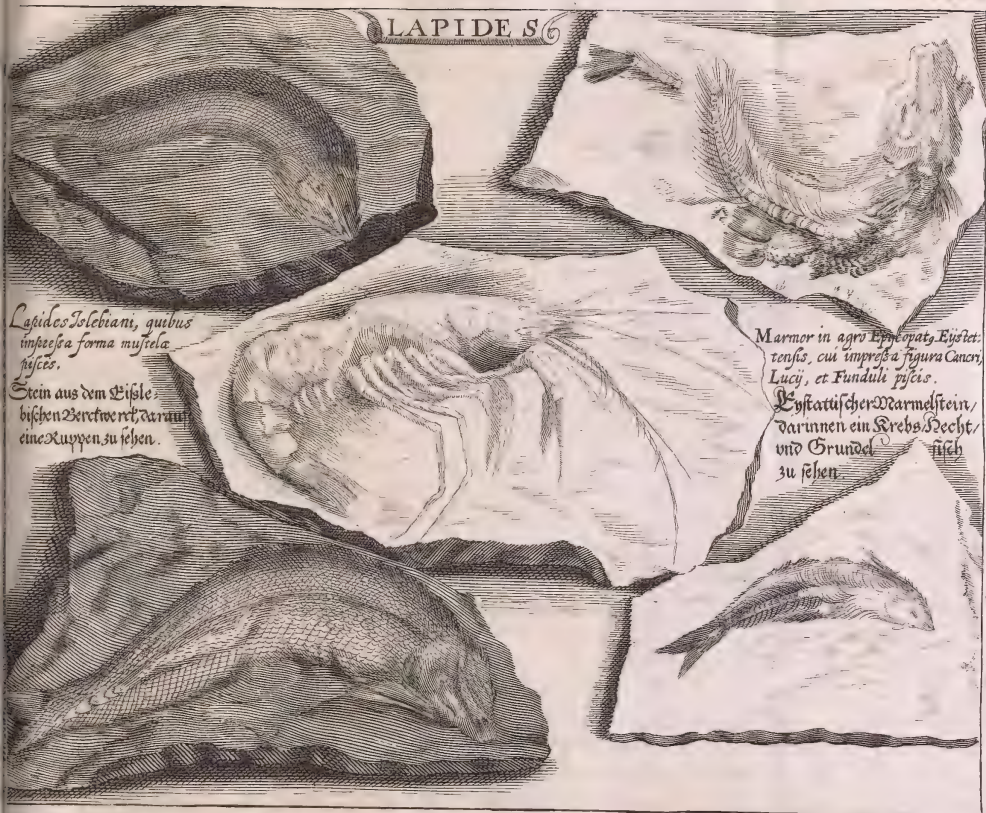 LAPIDES
Lapides Islebiani, quibus
impressa forma mustelæ
pisces.
Stein aus dem Eißle-
bischen Berckwerck, darauf
eine Ruppen zu sehen.
Marmor in agro Eystet-
tensis, cui impressa figura Cancri,
Lucij, et Funduli piscis.
Eystättischer Marmelstein/
darinnen ein Krebs/Hecht/
vnd Grundel fisch
zu sehen.